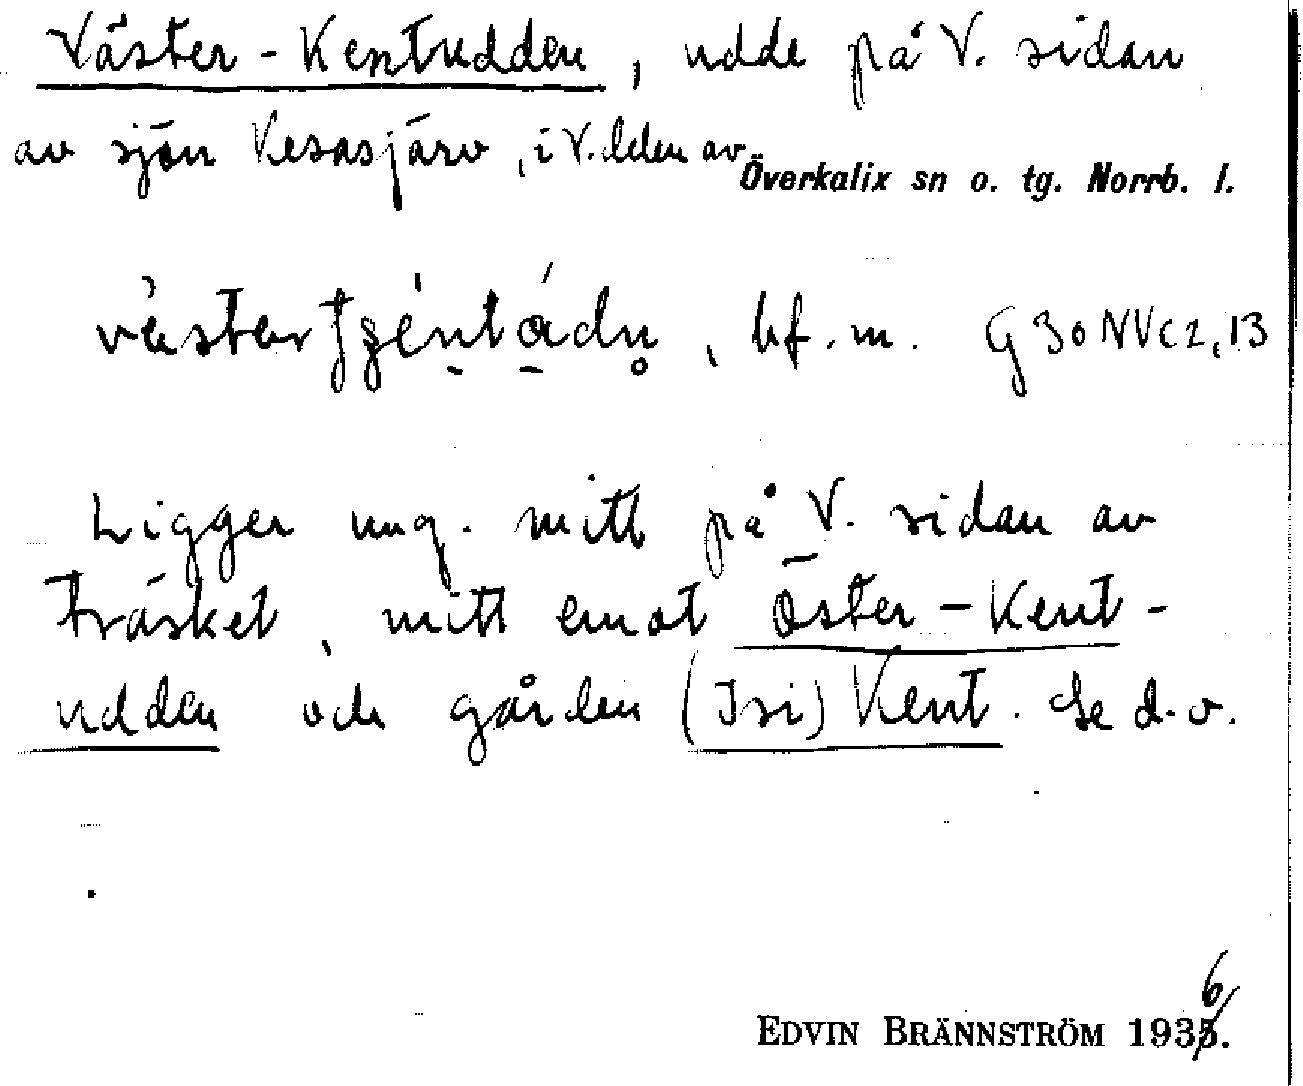 Väster-Kentudden, udde på V. sidan
av sjön Vesasjärv, i V. delen av
Överkalix sn o. tg. Norrb. l.
bf. m. G 30 NV c 2, 13
Ligger ung. mitt på V. sidan av
träsket, mitt emot Öster-Kent-
udden och gården (Isi) Kent. Se d. o.
EDVIN BRÄNNSTRÖM 1936.